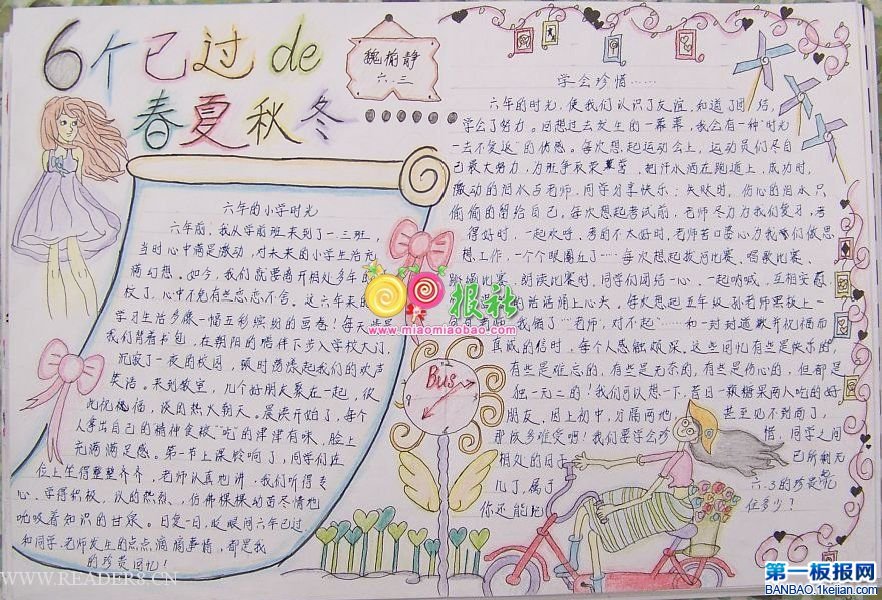 6个已过de
春夏秋冬
魏楠静
六.三
六年的小学时光
六年前,我从学前班来到了一.三班,
当时心中满是激动,对未来的小学生活充
满幻想。如今,我们就要离开相处多年的
校了,心中不免有些恋恋不舍。这六年来的
学习生活多像一幅五彩缤纷的画卷!每天清晨
我们背着书包,在朝阳的陪伴下步入学校大门,
沉寂了一夜的校园,顿时荡漾起我们的欢声
笑语。来到教室,几个好朋友聚在一起,彼
此祝福,谈的热火朝天。晨读开始了,每个
人拿出自己的精神食粮"吃"的津津有味,脸上
充满满足感。第一节上课铃响了,同学们在
位上坐得整整齐齐,老师认真地讲,我们听得专
心、学得积极,议的热烈,仿佛棵棵幼苗尽情地
吮吸着知识的甘泉。日复一日,眨眼间六年已过
和同学、老师发生的点点滴滴事情,都是我
的珍贵回忆!
学会珍惜……
六年的时光,使我们认识了友谊,知道了团结,
学会了努力。回想过去发生的一幕幕,我会有一种"时光
一去不复返"的伤感。每次想起运动会上,运动员们尽自
己最大努力,为班争取荣誉,把汗水洒在跑道上,成功时,
激动的泪水与老师,同学分享快乐;失败时,伤心的泪水只
偷偷的留给自己。每次想起考试前,老师尽力为我们复习,考
得好时,一起欢呼,考的不太好时,老师苦口婆心为我们做思
想工作,一个个眼圈红了……每次想起拔河比赛、唱歌比赛、
跳绳比赛、朗读比赛时,同学们团结一心,一起呐喊,互相安慰
话语涌上心头。每次想起五年级孙老师黑板上一
我错了……老师,对不起"……和一封封道歉并祝福而
真诚的信时,每个人感触颇深。这些回忆有些是快乐的,
有些是难忘的,有些是无奈的,有些是伤心的,但都是
独一无二的!我们可以想一下,昔日一颗糖果两人吃的好
朋友,因上初中,分隔两地,甚至见不到面了,
那该多难受啊!我们要学会珍惜,同学之间
相处的日子已所剩无
几了,属于六.3的珍贵记
你还能记住多少?
Bus
报社
www.miaomiaobao.com
WWW.READER8.CN
第一板报网
BANBAO.1kejian.com